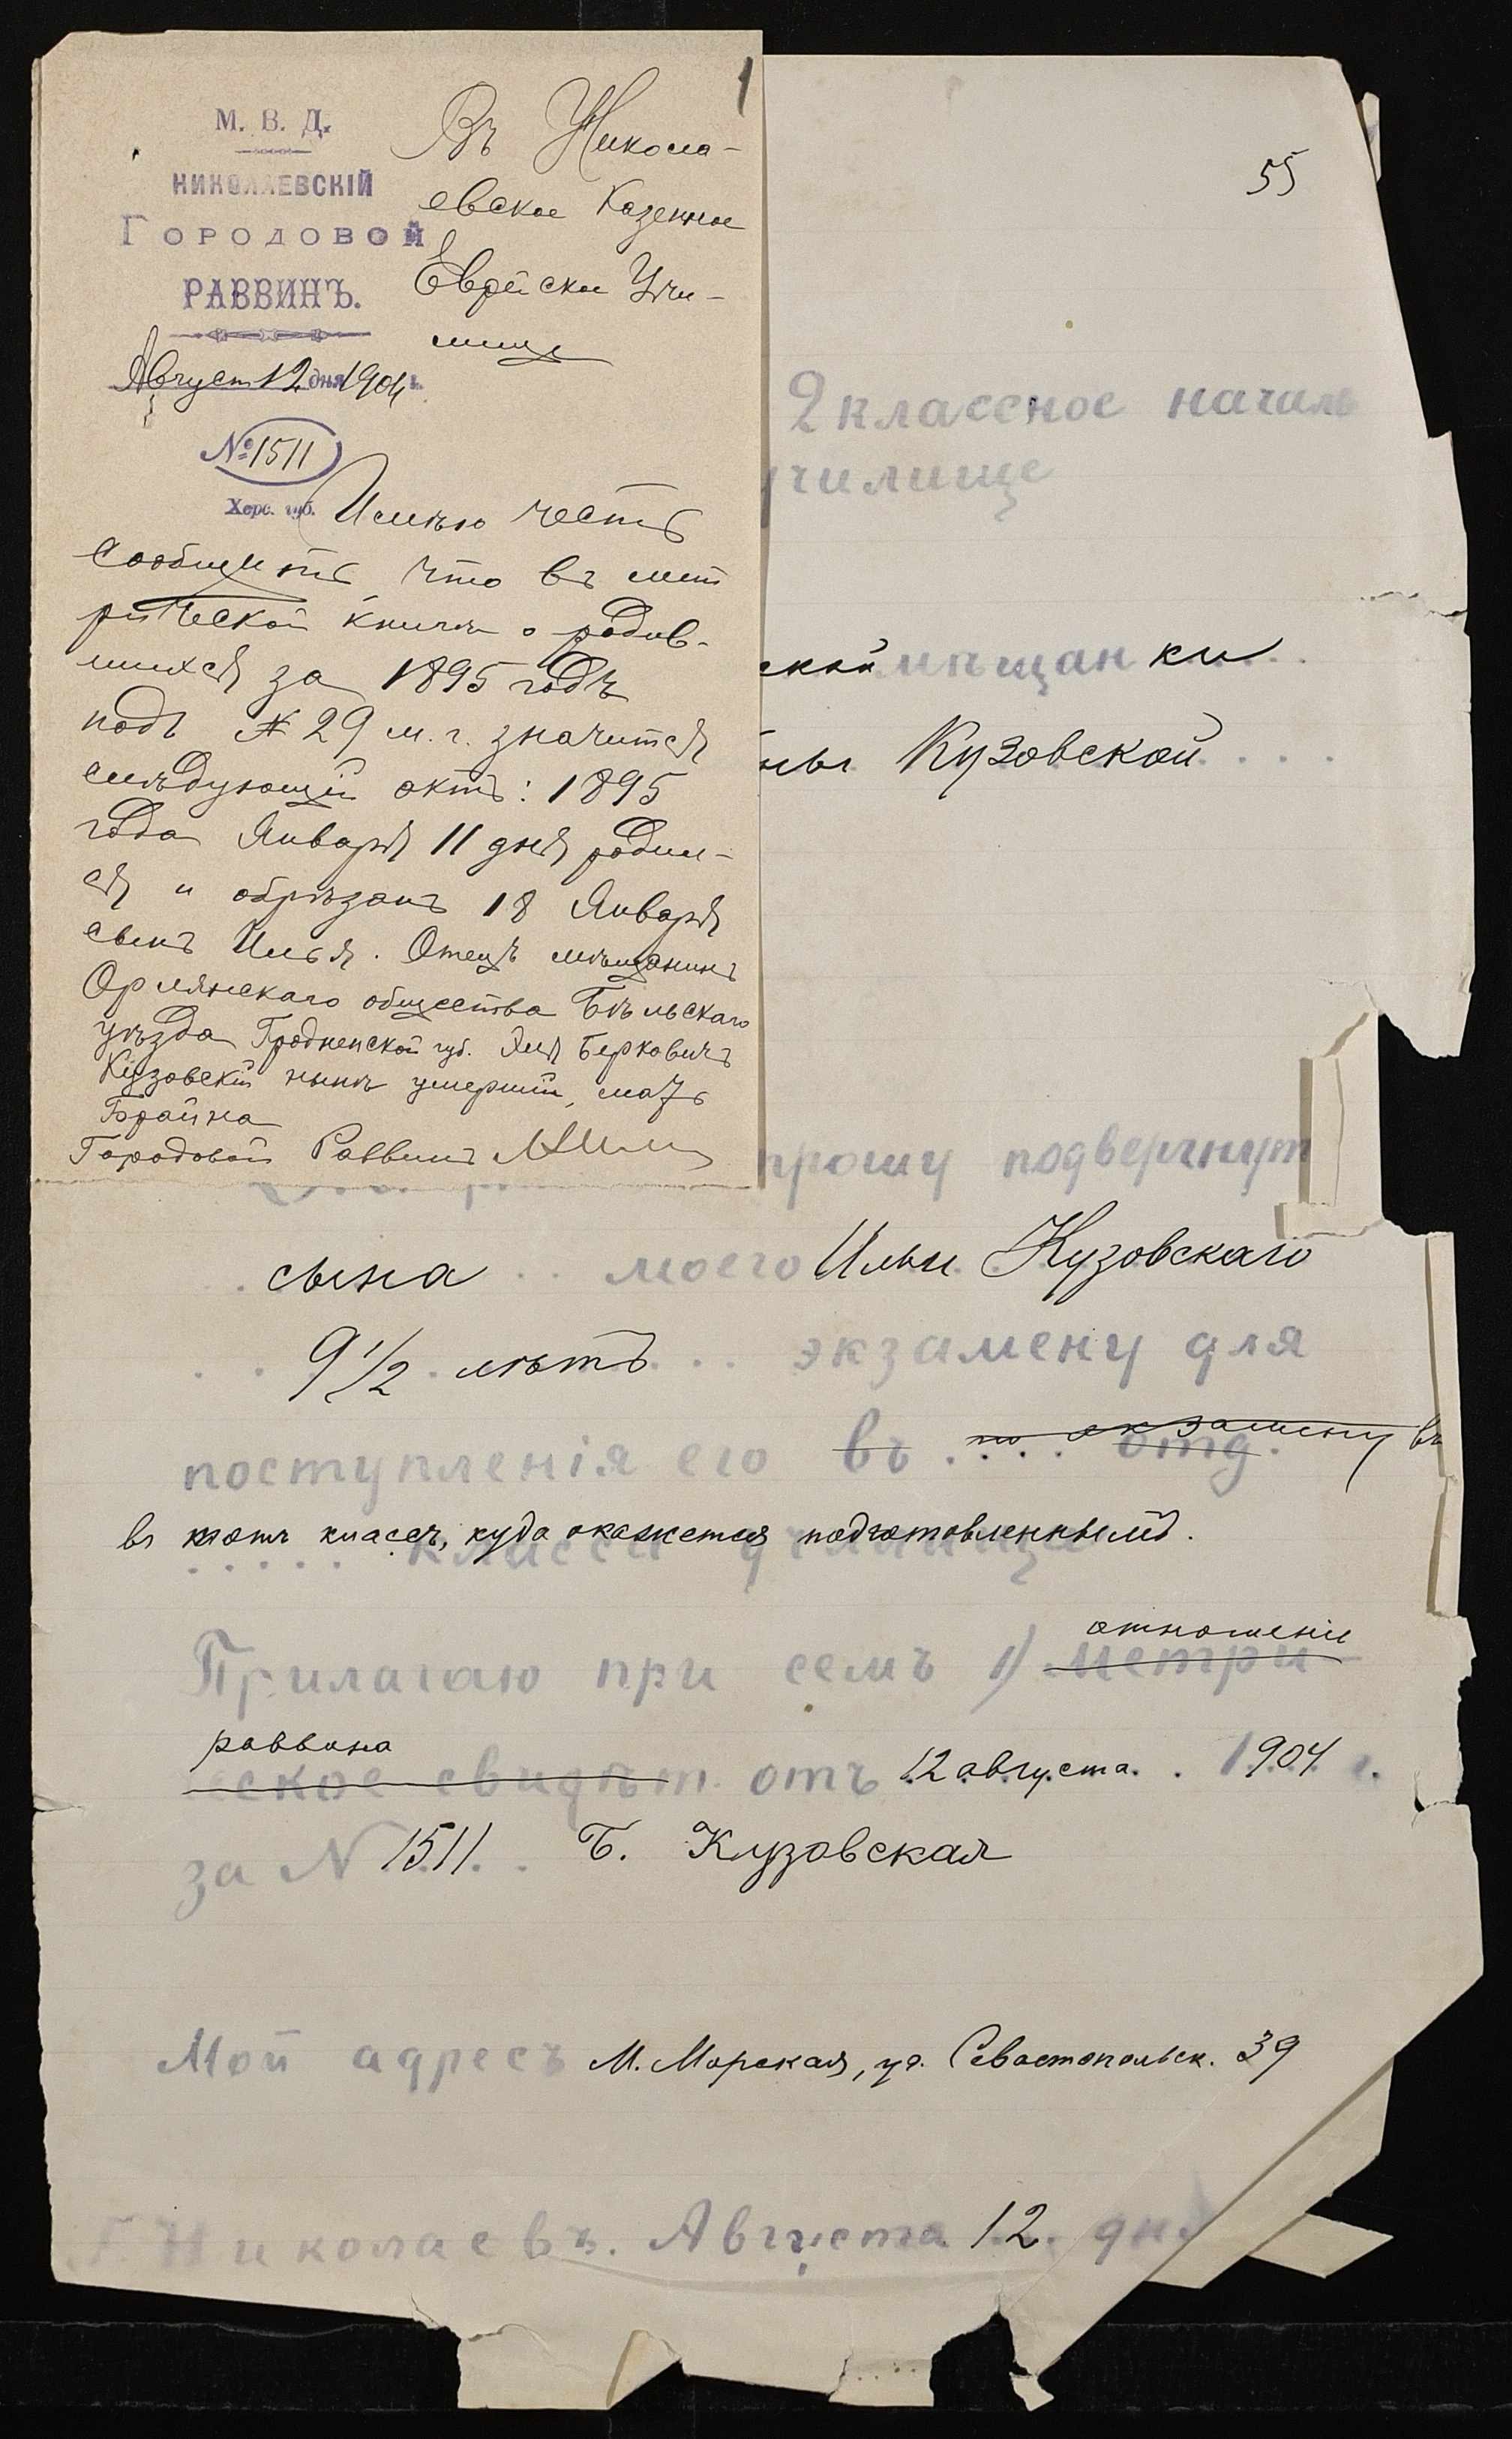 1
М. В. Д.
НИКОЛАЕВСКІЙ
ГОРОДОВОЙ
РАВВИНЪ.
Августа 12 дня 1904 г.
№ 1511
Херс. губ.
Въ Никола-
евское Казенное
Еврейское Учи-
лище
Имѣю честь
сообщить что въ мет
рической книгѣ о родив-
шихся за 1895 годъ
подъ № 29 м. г. значится
слѣдующій актъ: 1895
года Января 11 дня родил-
ся и обрѣзанъ 18 Января
сынъ Илья. Отецъ мѣщанинъ
Орлянскаго общества Бѣльскаго
уѣзда Гродненской губ. Берковичъ
Кузовскій нынѣ умершій, мать
Брайна
Городовой Раввинъ
55
2 классное началь
училище
ской мѣщанки
ны Кузовской
прошу подвергнут
сына моего Ильи Кузовскаго
9 1/2 лѣтъ экзамену для
поступленія его въ по экзамену отд. въ
въ тотъ классъ, куда окажется подготовленнымъ.
класса училища
отношеніе
Прилагаю при семъ 1) метри-
раввина
ческое свидѣт. отъ 12 августа 1904 г.
за N 1511 Б. Кузовская
Мой адресъ М. Морская, уг. Севастопольск. 39
Г Николаевъ. Августа 12 дня